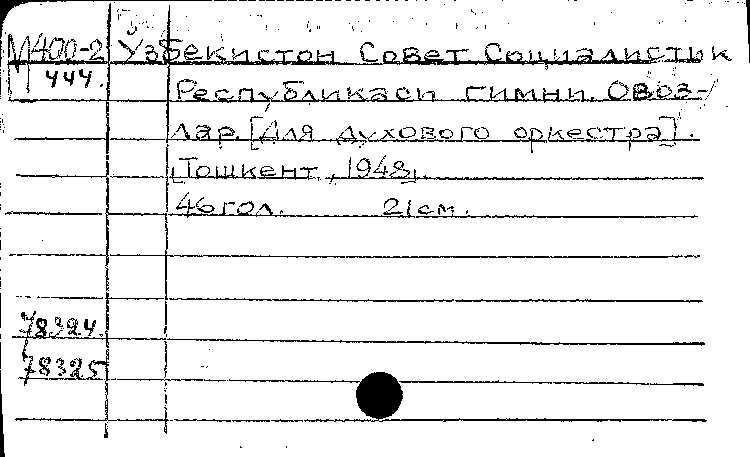 М400-2 Узбекистон Совет Социалистык
444. Республикаси гимни. Овоз-
лар. [Для духового оркестра].
[Тошкент, 1948].
46 гол. 21 см.
78324.
78325